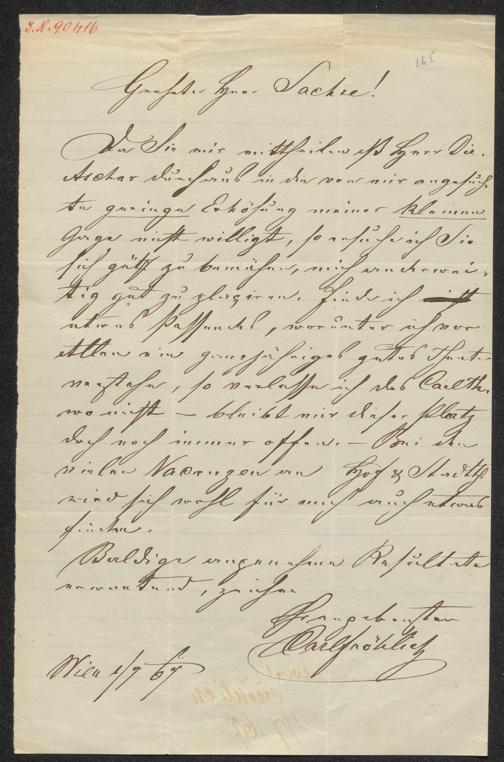 I.N. 90416
165
Geehrter Herr Sachse!
Da Sie mir mittheilen dß Herr Dir.
Ascher durchaus in die von mir angesuch-
te geringe Erhöhung meiner kleinen
Gage nicht willigt, so ersuche ich Sie
sich gütigst zu bemühen, mich anderwei-
tig gut zu plaziren. Finde ich
etwas Passendes, worunter ich vor
Allem ein ganzjähriges gutes Theater
verstehe, so verlasse ich das Carlth.
wo nicht – bleibt mir dieser Platz
doch noch immer offen. – Bei den
vielen Vacanzen an Hof & Stadtth.
wird sich wohl für mich auch etwas
finden.
Baldige angenehme Resultate
erwartend, zeichne
Ergebenster
Carl Fröhlich
Wien 1/7 67